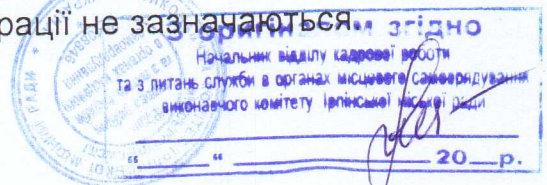 рації не зазначаються.
З оригіналом згідно
Начальник відділу кадрової роботи
та з питань служби в органах місцевого самоврядування
виконавчого комітету Ірпінської міської ради
“ “ 20 р.